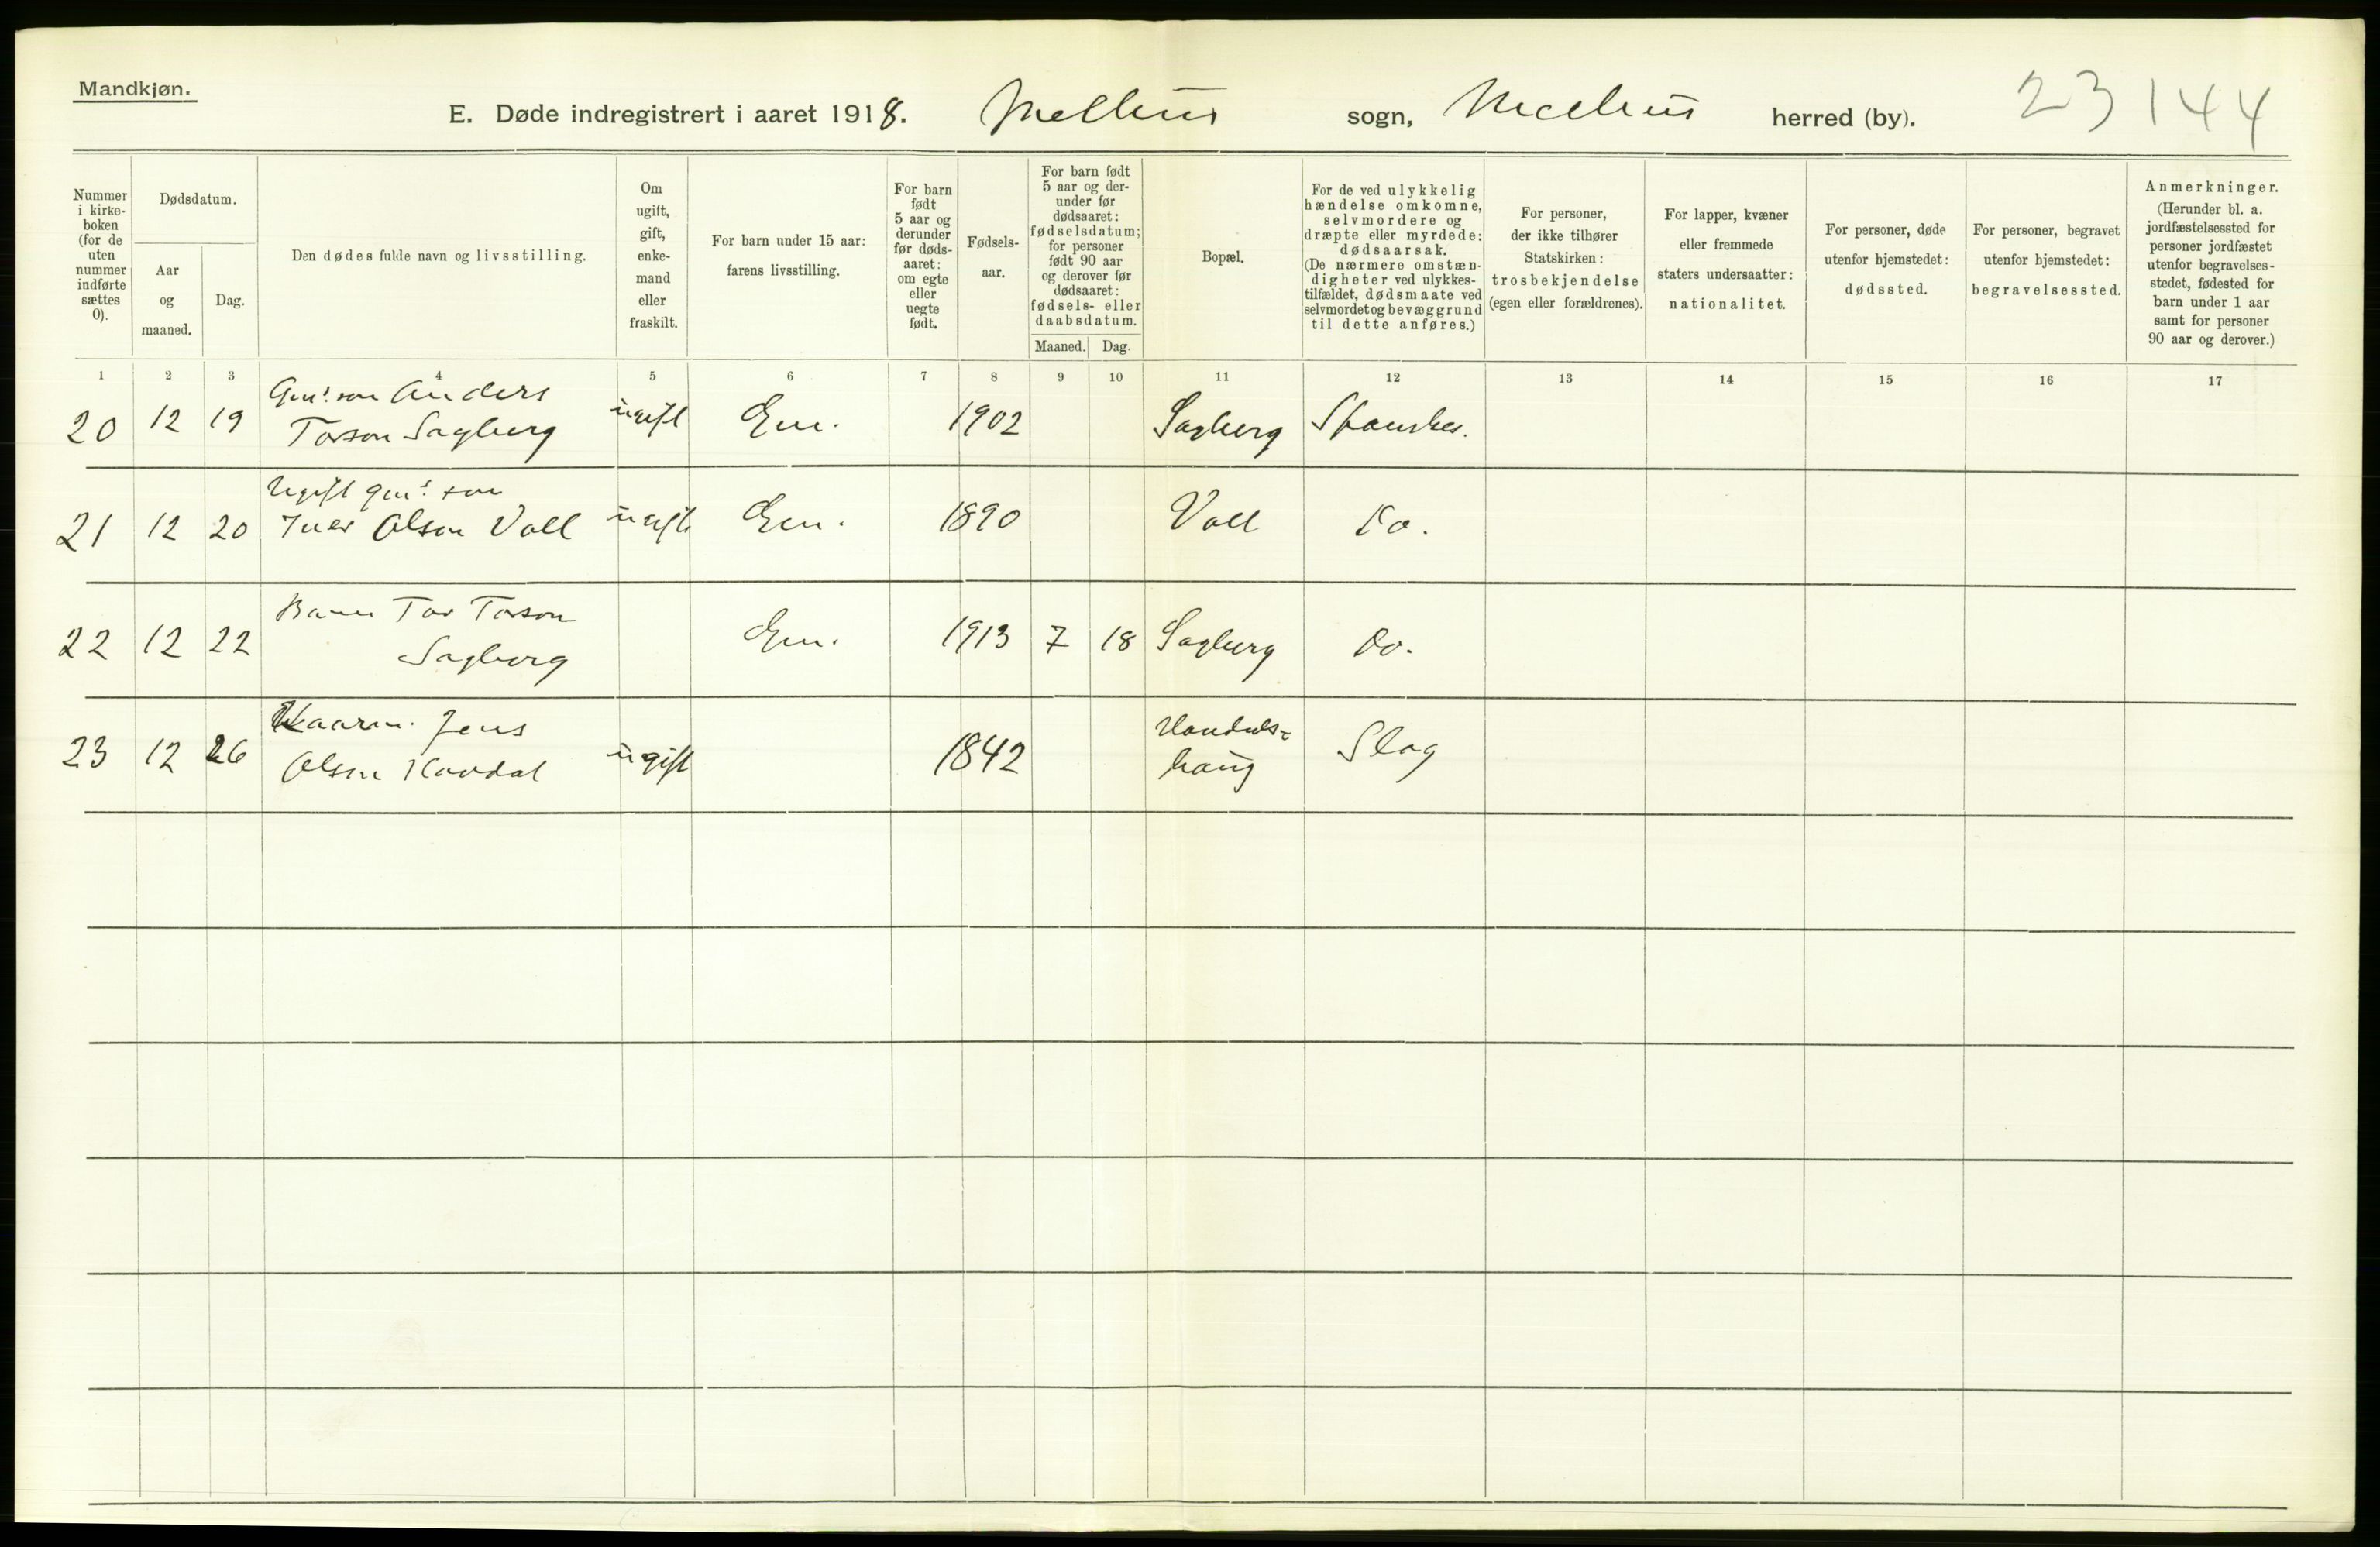 Mandkjøn.
E. Døde indregistrert i aaret 1918. Melhus sogn, Melhus herred (by). 23 144
Nummer i kirke-boken (for de uten nummer indførte sættes 0).
Dødsdatum.
Aar og maaned.
Dag.
Den dødes fulde navn og livsstilling.
Om ugift, gift, enke-mand eller fraskilt.
For barn under 15 aar: farens livsstilling.
For barn født 5 aar og derunder før døds-aaret: om egte eller uegte født.
Fødsels-aar.
For barn født 5 aar og der-under før dødsaaret: fødselsdatum; for personer født 90 aar og derover før dødsaaret: fødsels- eller daabsdatum.
Maaned. Dag.
Bopæl.
For de ved ulykkelig hændelse omkomne, selvmordere og dræpte eller myrdede: dødsaarsak. (De nærmere omstæn-digheter ved ulykkes-tilfældet, dødsmaate ved selvmordet og bevæggrund til dette anføres.)
For personer, der ikke tilhører Statskirken: trosbekjendelse (egen eller forældrenes).
For lapper, kvæner eller fremmede staters undersaatter: nationalitet.
For personer, døde utenfor hjemstedet: dødssted.
For personer, begravet utenfor hjemstedet: begravelsessted.
Anmerkninger. (Herunder bl. a. jordfæstelsessted for personer jordfæstet utenfor begravelses-stedet, fødested for barn under 1 aar samt for personer 90 aar og derover.)
1 2 3 4 5 6 7 8 9 10 11 12 13 14 15 16 17
Gm's son Anders
20 12 19 Torson Sagberg ugift Gm. 1902 Sagberg Spanskes.
Ugift gm's son
21 12 20 Iver Olsen Voll ugift Gm. 1890 Voll Do.
Barn Tor Torson
22 12 22 Sagberg Gm. 1913 7 18 Sagberg Do.
Jens
23 12 26 Olsen ugift 1842 haug Slag